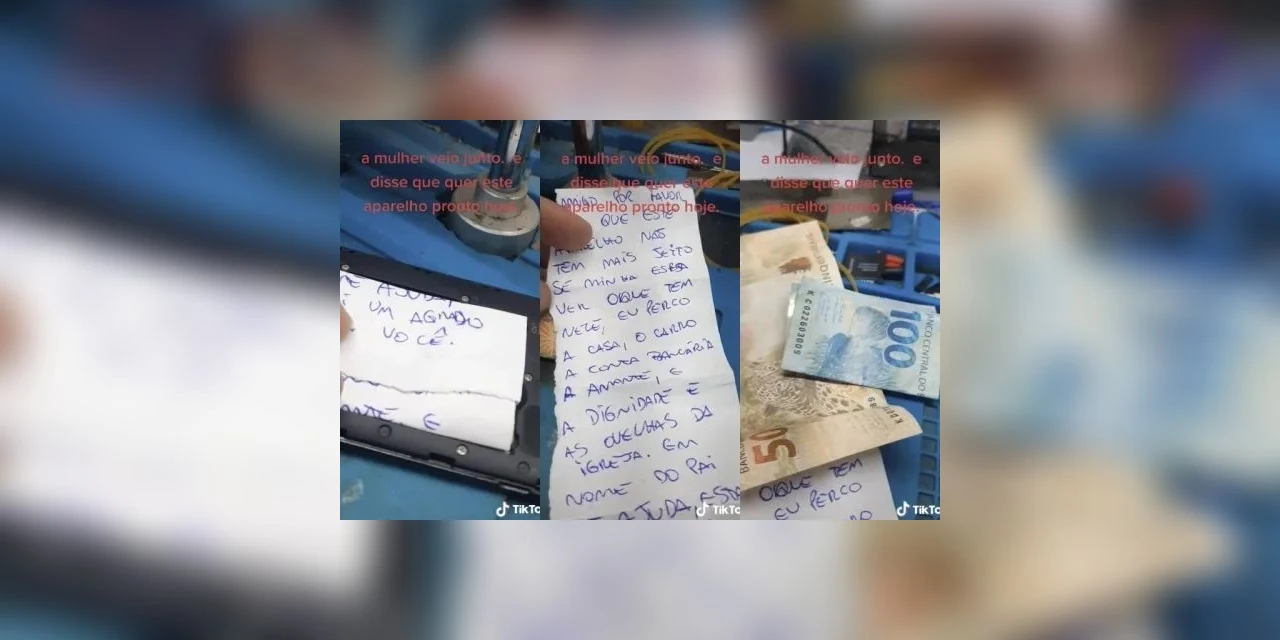 a mulher veio junto. e
disse que quer este
aparelho pronto hoje.
AJUDA,
UM AGRADO
VOCÊ.
E
TikTo
a mulher veio junto. e
disse que quer este
aparelho pronto hoje.
AMIGO POR FAVOR
QUE ESTE
APARELHO NÃO
TEM MAIS JEITO
SE MINHA
VER OIQUE TEM
NETE, EU PERCO
A CASA, O CARRO
A CONTA BANCÁRIA
A AMANTE, E
A DIGNIDADE E
AS OVELHAS DA
IGREJA. EM
NOME DO PAI
AJUDA
TikTo
a mulher veio junto. e
disse que quer este
aparelho pronto hoje.
KC022603009
100
CENTRAL DO
50
OIQUE TEM
EU PERCO
TikTo